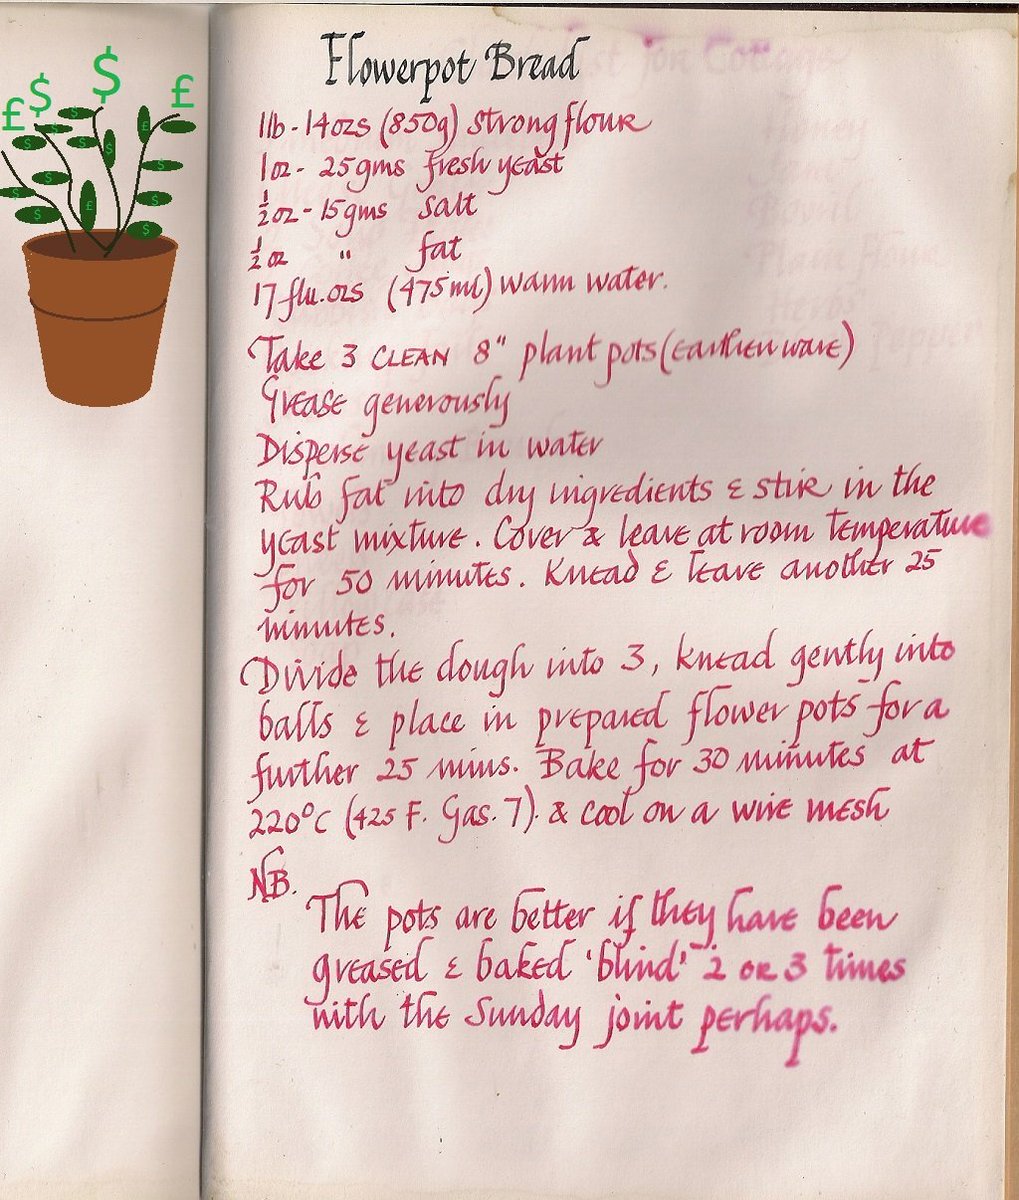 Flowerpot Bread
1lb - 14ozs (850g) strong flour
1oz - 25gms fresh yeast
½oz - 15gms salt
½oz " fat
17 flu.ozs (475ml) warm water.
Take 3 CLEAN 8" plant pots (earthenware)
Grease generously
Disperse yeast in water
Rub fat into dry ingredients & stir in the
yeast mixture. Cover & leave at room temperature
for 50 minutes. Knead & leave another 25
minutes.
Divide the dough into 3, knead gently into
balls & place in prepared flower pots for a
further 25 mins. Bake for 30 minutes at
220°C (425 F. Gas. 7). & cool on a wire mesh
NB.
The pots are better if they have been
greased & baked 'blind' 2 or 3 times
with the Sunday joint perhaps.
£ $ $ £